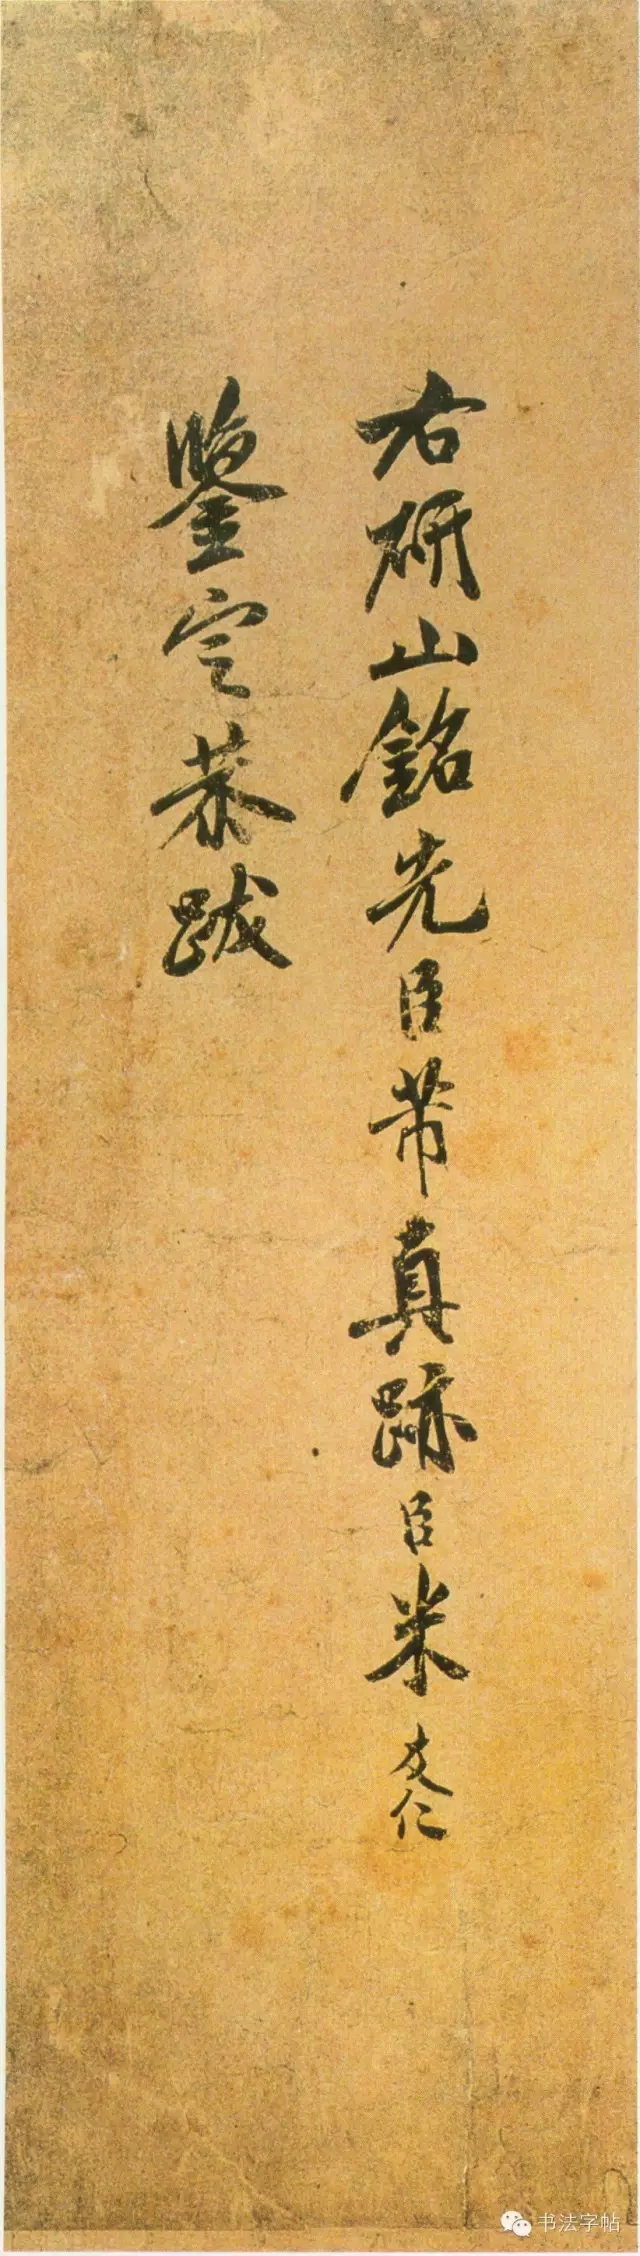 右研山銘先臣芾真跡臣米友仁
鑒定恭跋
书法字帖